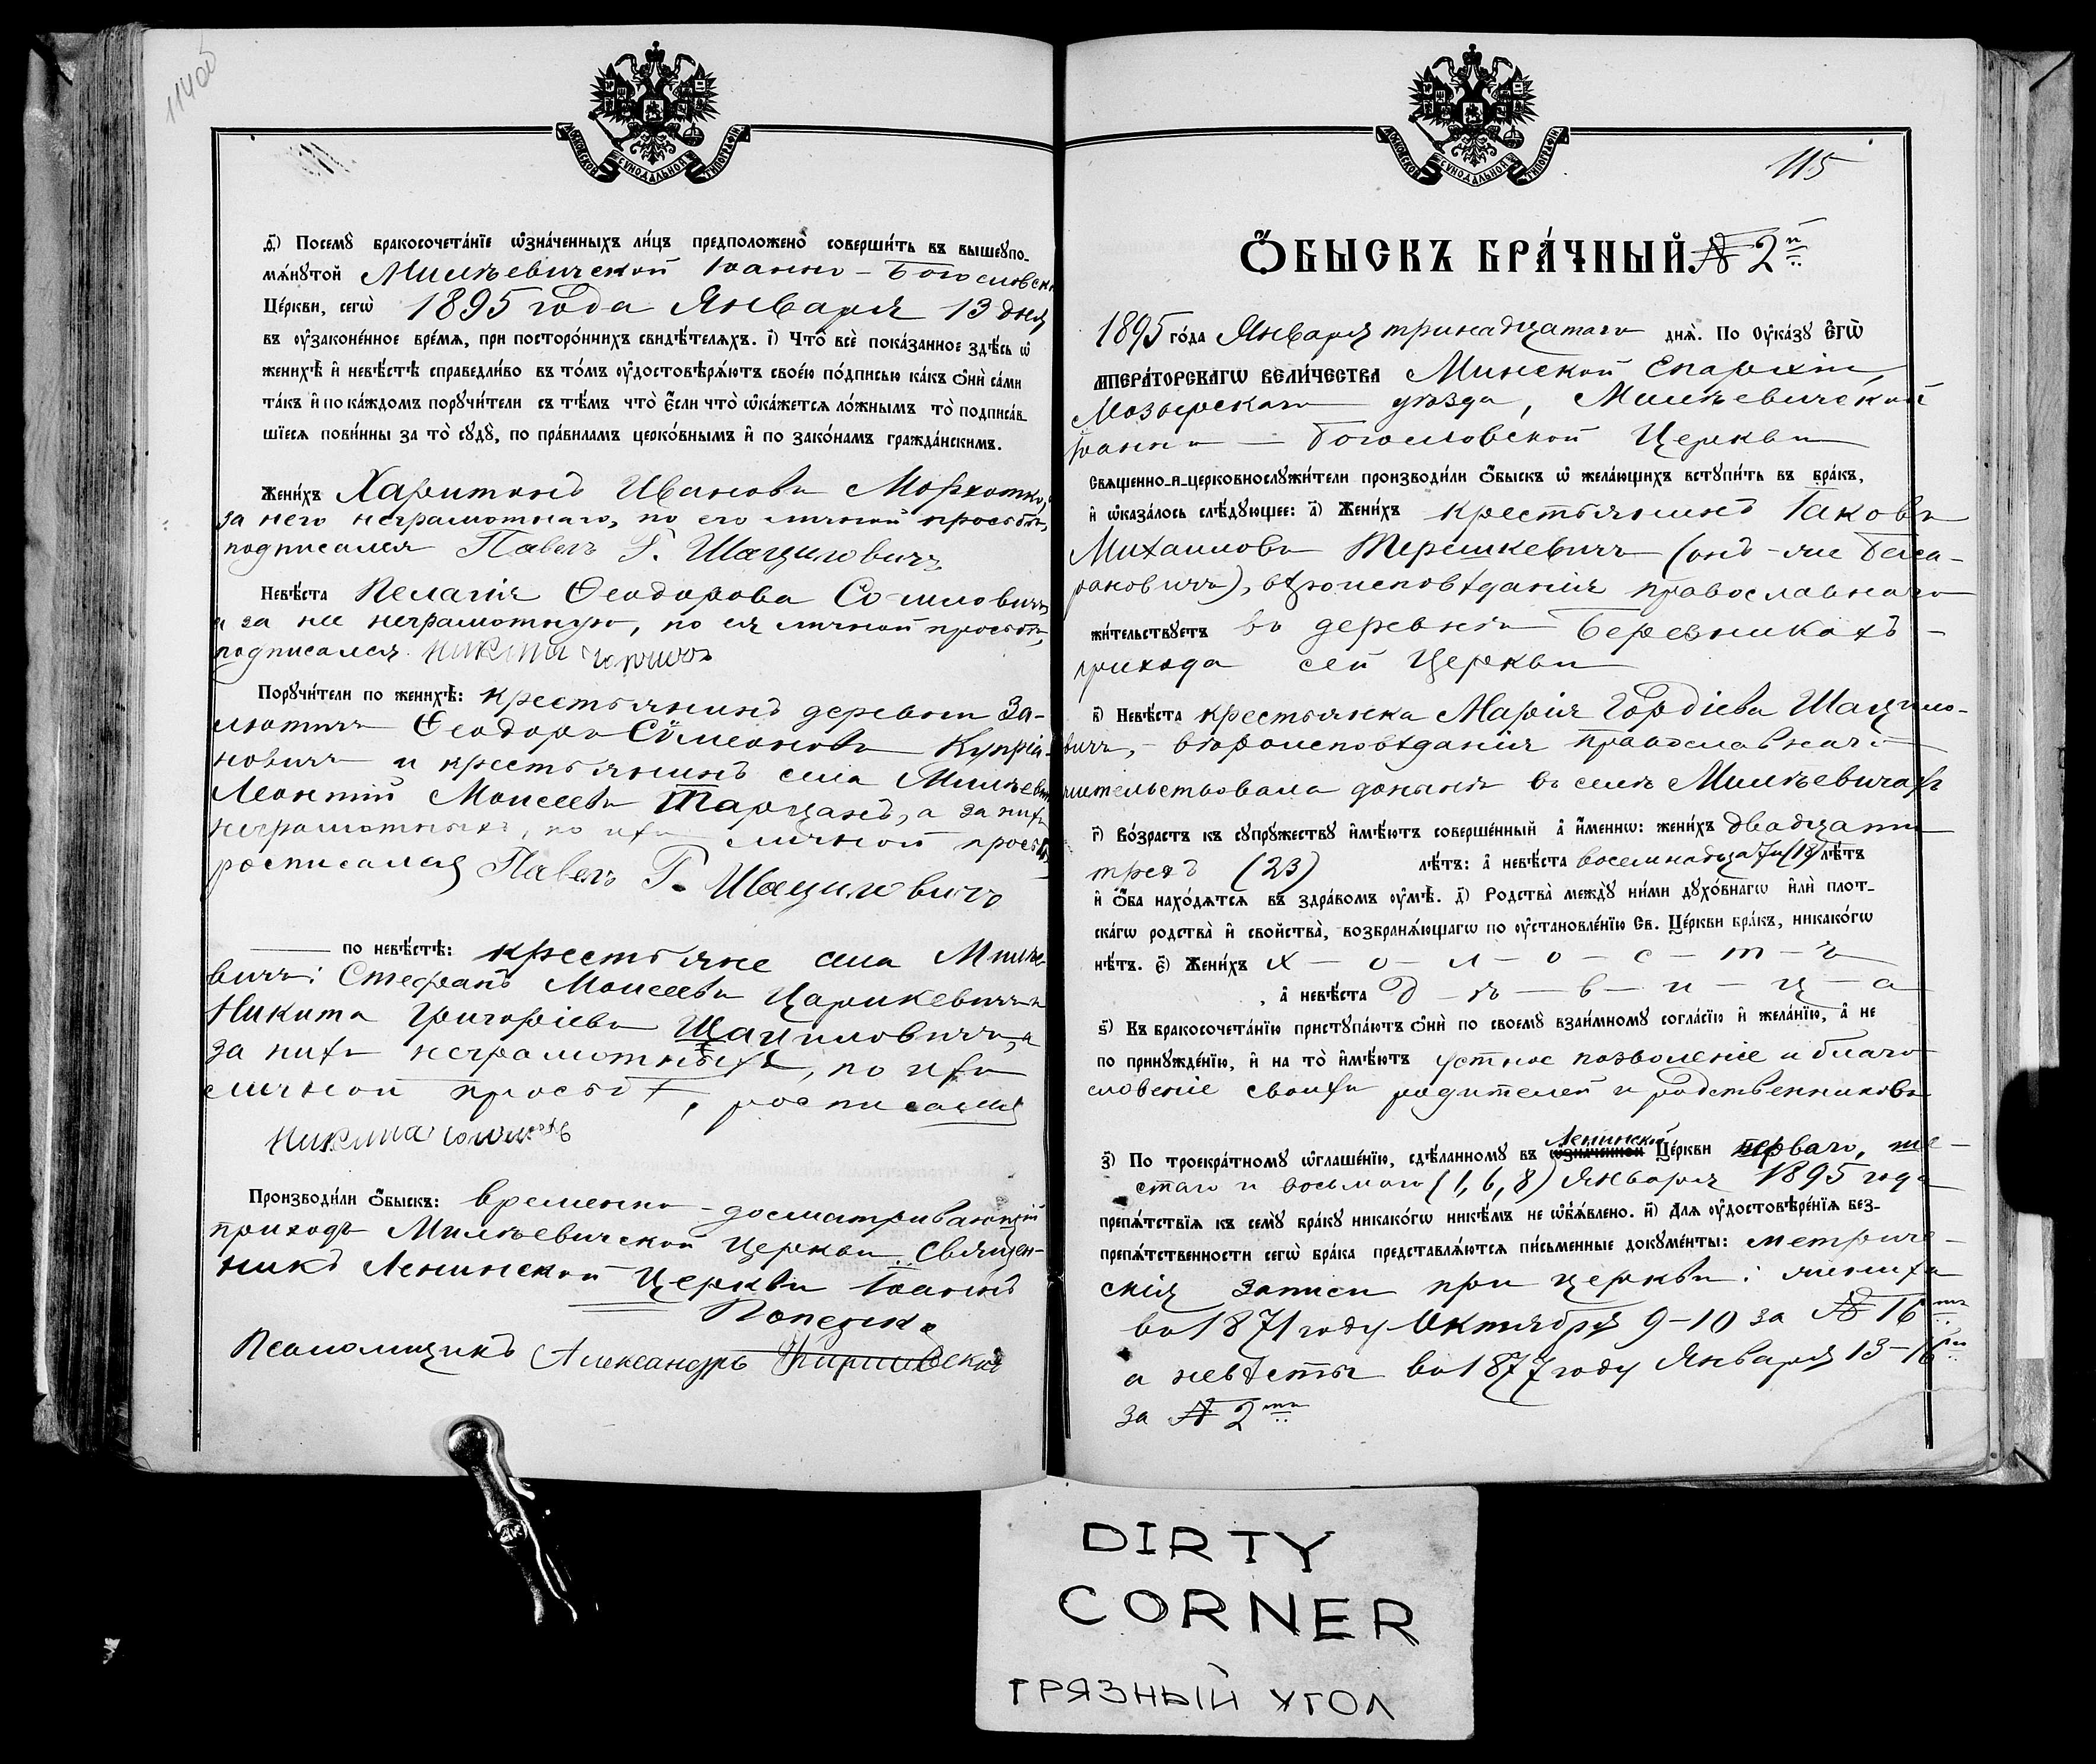 1140б
МОСКОВСКОЙ СУНОДАЛЬНОЙ ТИПОГРАФІИ
д҃і) Посемꙋ̀ бракосочета́нїе ѡ҆зна́ченныхъ ли́цъ предположено̀ соверши́ть въ вышеупо-
мѧ́нꙋтой Милѣевичской Іоанно-Богословск
Це́ркви, сегѡ̀ 1895 года Января 13 дня
въ ᲂу҆зако́нєнное вре́мѧ, при посторо́ннихъ свидѣ́телѧхъ. і҃) Что̀ всѐ пока́занное здѣ́сь ѡ҆
женихѣ̀ и҆ невѣ́стѣ справедли́во въ то́мъ ᲂу҆достовѣрѧ́ютъ свое́ю по́дписью ка́къ ѻ҆нѝ са́ми
та́къ и҆ по ка́ждомъ поручи́тели съ тѣ́мъ что̀ є҆́сли что̀ ѡ҆ка́жетсѧ ло́жнымъ то̀ подписа́в-
шїесѧ пови́нны за то̀ сꙋдꙋ̀, по пра́виламъ церко́внымъ и҆ по зако́намъ гражда́нскимъ.
Жени́хъ Харитонъ Ивановъ Морхотко,
за него неграмотнаго, по его личной просьбѣ,
подписался Павелъ Г. Шациловичъ
Невѣ́ста Пелагія Ѳеодорова
а за нее неграмотную, по ея личной просьбѣ,
подписался Никита
Порꙋчи́тели по женихѣ̀: крестьянинъ деревни За-
лютичъ Ѳеодоръ Сѵмеоновъ Купріа-
новичъ и крестьянинъ села Милѣевичъ
Леонтій Моисеевъ Тарцанъ, а за нихъ
неграмотныхъ, по ихъ личной просьбѣ,
росписался Павелъ Г. Шациловичъ
по невѣ́стѣ: крестьяне села Милѣе-
вичъ: Стефанъ Моисеевъ Царикевичъ и
Никита Григоріевъ Шациловичъ, а
за нихъ неграмотныхъ, по ихъ
личной просьбѣ, росписался
Никита
Производи́ли ѻ҆́быскъ: временно-досматривающій
приходъ Милѣевичской Церкви Священ-
никъ Ленинской Церкви Іоаннъ
Псаломщикъ Александръ
МОСКОВСКОЙ СУНОДАЛЬНОЙ ТИПОГРАФІИ
115
Ѻ҆́БЫСКЪ БРА́ЧНЫЙ № 2й
1895 го́да Января тринадцатаго днѧ̀. По ᲂу҆ка́зꙋ Є҆ГѠ̀
ИМПЕРА́ТОРСКАГѠ ВЕЛИ́ЧЕСТВА Минской Епархіи,
Мозырскаго уѣзда, Милѣевичской
Іоанно-Богословской Церкви
Свѧщенно-и-церковнослꙋжи́тели производи́ли ѻ҆́быскъ ѡ҆ жела́ющихъ встꙋпи́ть въ бра́къ,
и҆ ѡ҆каза́лось слѣ́дꙋющее: а҃) Жени́хъ крестьянинъ Іаковъ
Михаиловъ Терешкевичъ (онъ-же Беса-
раковичъ), вѣроисповѣданія православнаго
жи́тельствꙋетъ въ деревнѣ Березникахъ
прихода сей Церкви
в҃) Невѣ́ста крестьянка Марія Гордіева Шацило-
вичъ, - вѣроисповѣданія православнаго
жительствовала донынѣ въ селѣ Милѣевичахъ
г҃) Во́зрастъ къ сꙋпрꙋ́жествꙋ и҆мѣ́ютъ соверше́нный а҆̀ и҆́меннѡ: жени́хъ двадцати
трехъ (23) лѣ́тъ: а҆̀ невѣ́ста восемнадцати (18) лѣ́тъ
и҆ ѻ҆́ба нахо́дѧтсѧ въ здра́вомъ ᲂу҆мѣ̀. д҃) Родства̀ междꙋ̀ ни́ми дꙋхо́внагѡ и҆лѝ плот-
ска́гѡ родства̀ и҆ сво́йства̀, возбранѧ́ющагѡ по ᲂу҆становле́нїю Св. Це́ркви бра́къ, никако́гѡ
нѣ́тъ. є҃) Жени́хъ х — о — л — о — с — т — ъ
, а҆̀ невѣ́ста д — ѣ — в — и — ц — а
ѕ҃) Къ бракосочета́нїю пристꙋпа́ютъ ѻ҆нѝ по своемꙋ̀ взаи́мномꙋ согла́сїю и҆ жела́нїю, а҆̀ не
по принꙋжде́нїю, и҆ на то̀ и҆мѣ́ютъ устное позволеніе и благо-
словеніе своихъ родителей и родственниковъ
Ленинской
з҃) По троекра́тномꙋ ѡ҆глаше́нїю, сдѣ́ланномꙋ въ ѡ҆зна́ченной Це́ркви перваго, ше-
стаго и восьмаго (1, 6, 8) Января 1895 года
препѧ́тствїѧ къ семꙋ̀ бра́кꙋ никако́гѡ никѣ́мъ не ѡ҆б̾ѧ́влено. и҃) Длѧ ᲂу҆достовѣре́нїѧ без-
препѧ́тственности сегѡ̀ бра́ка представлѧ́ютсѧ пи́сьменные докꙋме́нты: метриче-
скія записи при церкви: жениха
въ 1871 году Октября 9-10 за № 16мъ
а невѣсты въ 1877 году Января 13-16
за № 2мъ
DIRTY
CORNER
ГРЯЗНЫЙ УГОЛ